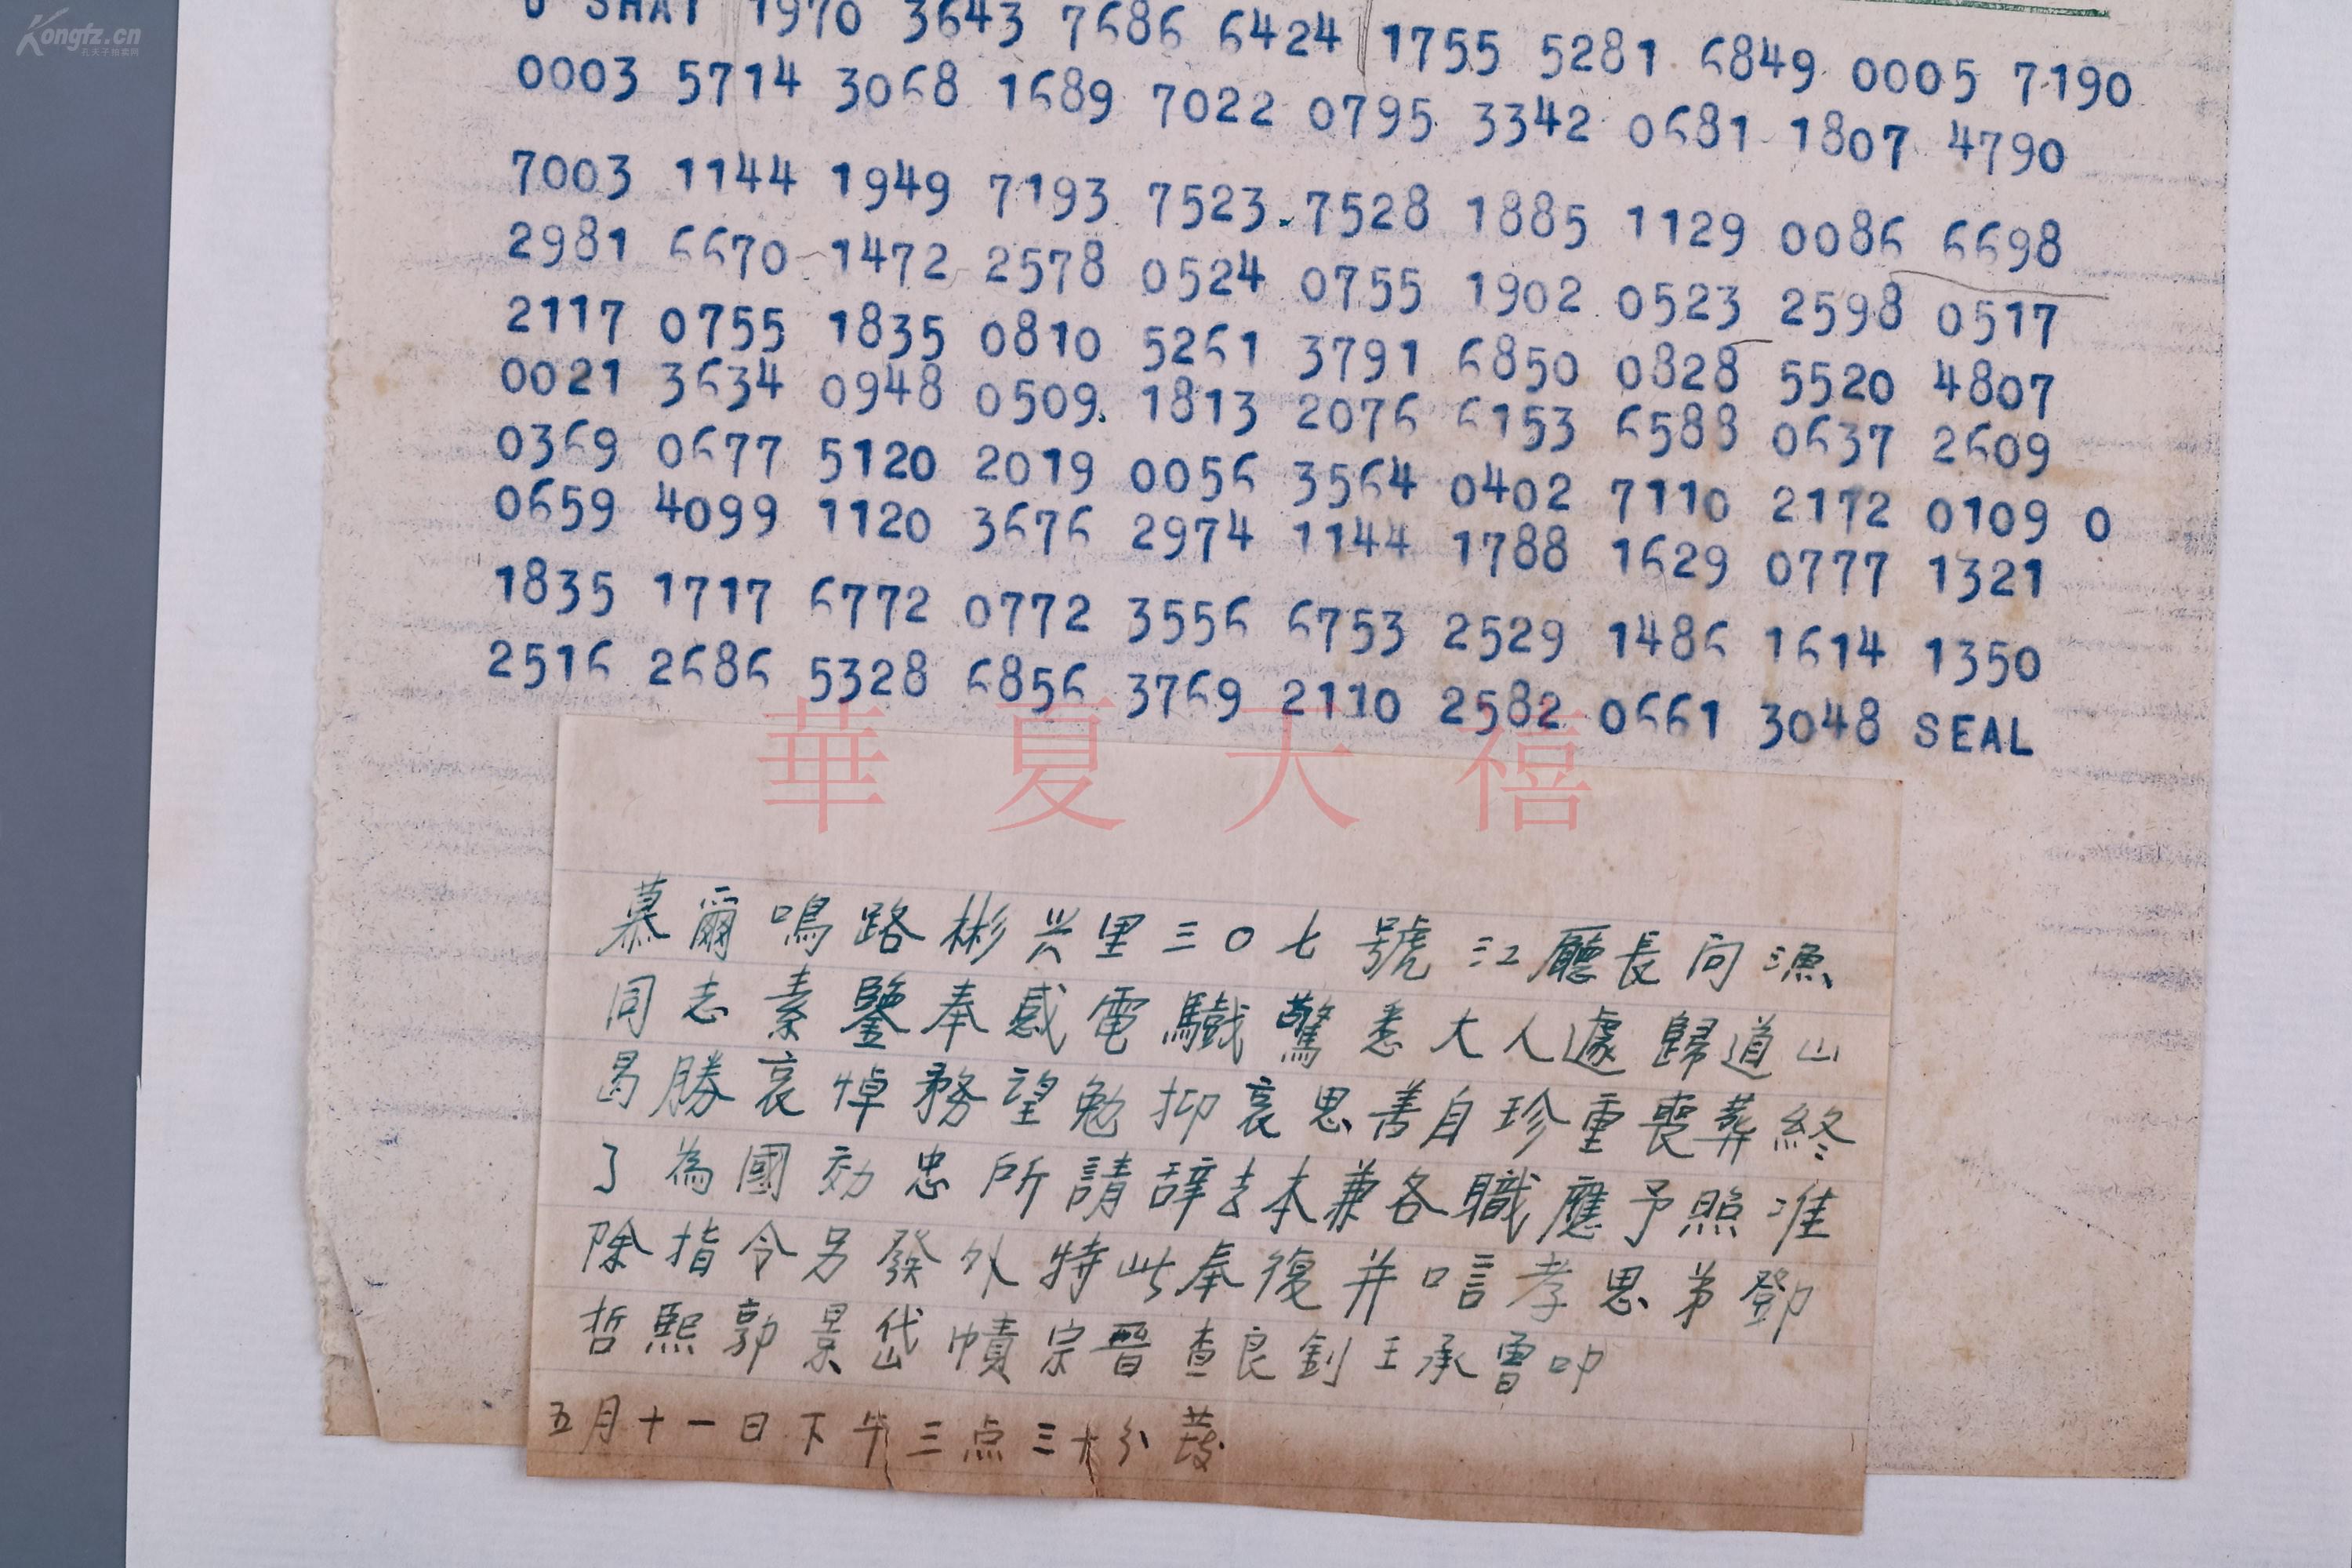 Kongfz.cn
孔夫子拍卖网
SHAI 1970 3643 7686 6424 1755 5281 6849 0005 7190
0003 5714 3068 1689 7022 0795 3342 0681 1807 4790
7003 1144 1949 7193 7523 7528 1885 1129 0086 6698
2981 6670 1472 2578 0524 0755 1902 0523 2598 0517
2117 0755 1835 0810 5261 3791 6850 0828 5520 4807
0021 3634 0948 0509 1813 2076 6153 6583 0637 2609
0369 0677 5120 2019 0056 3564 0402 7110 2172 0109 0
0659 4099 1120 3676 2974 1144 1788 1629 0777 1321
1835 1717 6772 0772 3556 6753 2529 1486 1614 1350
2516 2686 5328 6856 3769 2110 2582 0661 3048 SEAL
華夏天禧
慕爾鳴路彬兴里三〇七號江廳長向漁
同志素鑒奉感電驖驚悉大人遽歸道山
曷勝哀悼務望勉抑哀思善自珍重喪葬終
了為國効忠所請辞去本兼各職應予照准
除指令另發外特此奉復并唁孝思弟鄧
哲熙郭景岱幘宗晉查良釗王承曾叩
五月十一日下午三点三十分